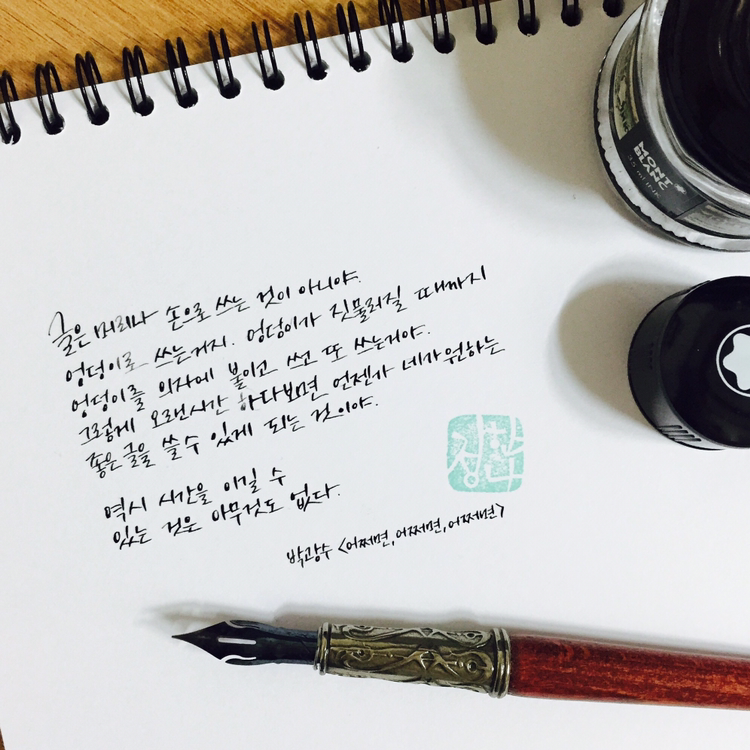 글은 머리나 손으로 쓰는 것이 아니야.
엉덩이로 쓰는거지. 엉덩이가 짓물러질 때까지
엉덩이를 의자에 붙이고 쓰고 또 쓰는거야.
그렇게 오랜시간 하다보면 언젠가 네가 원하는
좋은 글을 쓸 수 있게 되는 것이야.
역시 시간을 이길 수
있는 것은 아무것도 없다.
박광수 <어쩌면, 어쩌면, 어쩌면>
MONT
BLANC